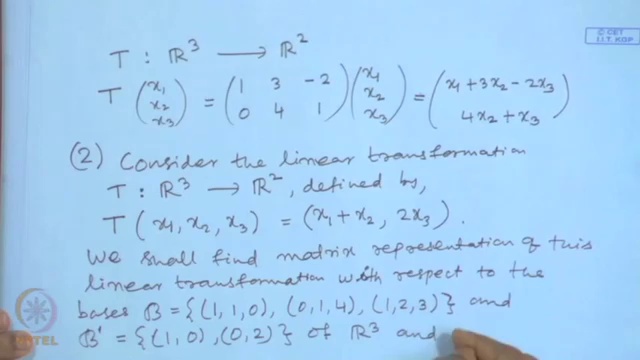 © CET
I.I.T. KGP
T : ℝ³ ⟶ ℝ²
T (x₁ x₂ x₃) = (1 3 -2 0 4 1) (x₁ x₂ x₃) = (x₁ + 3x₂ - 2x₃ 4x₂ + x₃)
(2) Consider the linear transformation
T : ℝ³ ⟶ ℝ², defined by,
T (x₁, x₂, x₃) = (x₁ + x₂, 2x₃).
We shall find matrix representation of this
linear transformation with respect to the
bases B = {(1, 1, 0), (0, 1, 4), (1, 2, 3)} and
B' = {(1, 0), (0, 2)} of ℝ³ and
NPTEL